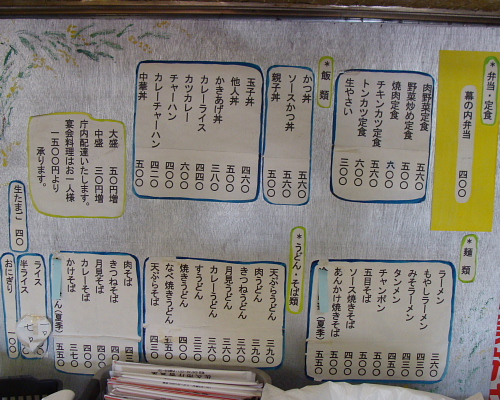 *弁当・定食
幕の内弁当 四〇〇
肉野菜定食 五六〇
野菜炒め定食 五〇〇
焼肉定食 六〇〇
チキンカツ定食 六〇〇
トンカツ定食 六〇〇
生やさい 三〇〇
*飯類
かつ丼 五六〇
ソースかつ丼 五六〇
親子丼 五〇〇
玉子丼 四六〇
他人丼 五〇〇
かきあげ丼 三八〇
カレーライス 四四〇
カツカレー 六〇〇
チャーハン 四〇〇
カレーチャーハン 四二〇
中華丼 五〇〇
大盛 五〇円増
中盛 三〇円増
庁内配達いたします。
宴会料理はお一人様
一五〇〇円より
承ります。
*麺類
ラーメン 三六〇
もやしラーメン
みそラーメン
タンメン
チャンポン 五〇〇
五目そば 五〇〇
ソース焼きそば 四〇〇
あんかけ焼きそば 五五〇
(夏季) 五五〇
*うどん・そば類
天ぷらうどん 三九〇
肉うどん
きつねうどん
月見うどん
カレーうどん
すうどん
焼きうどん
なべ焼きうどん
天ぷらそば 四三〇
肉そば
きつねそば
月見そば 四〇〇
カレーそば
かけそば 三七〇
ん(夏季) 五五〇
生たまご 四〇
ライス
半ライス
おにぎり 一〇〇